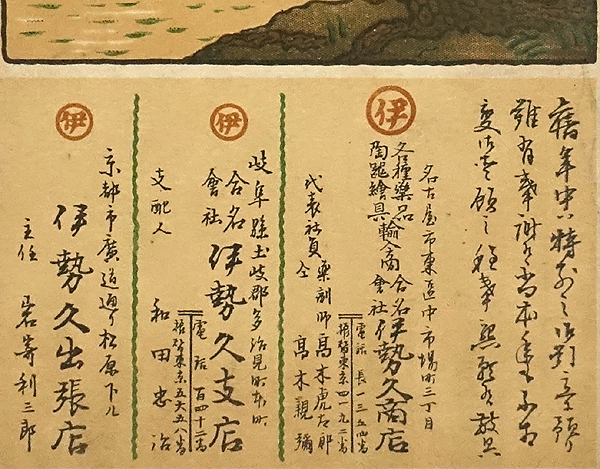 舊年中ハ特別之御引立預リ
難有奉謝候尚本年も不相
變御愛顧之程奉熙願候敬具
名古屋市東區中市場町三丁目
伊
各種藥品
陶磁繪具輸入商
合名會社
伊勢久商店
電話長一三五四番
振替東京四一九二番
代表社員
藥劑師
高木虎次郎
仝
高木親彌
岐阜縣土岐郡多治見町本町
伊
合名會社
伊勢久支店
電話百四十二番
振替東京五六五八番
支配人
和田忠治
京都市廣道通リ松原下ル
伊
伊勢久出張店
主任
岩嵜利三郎